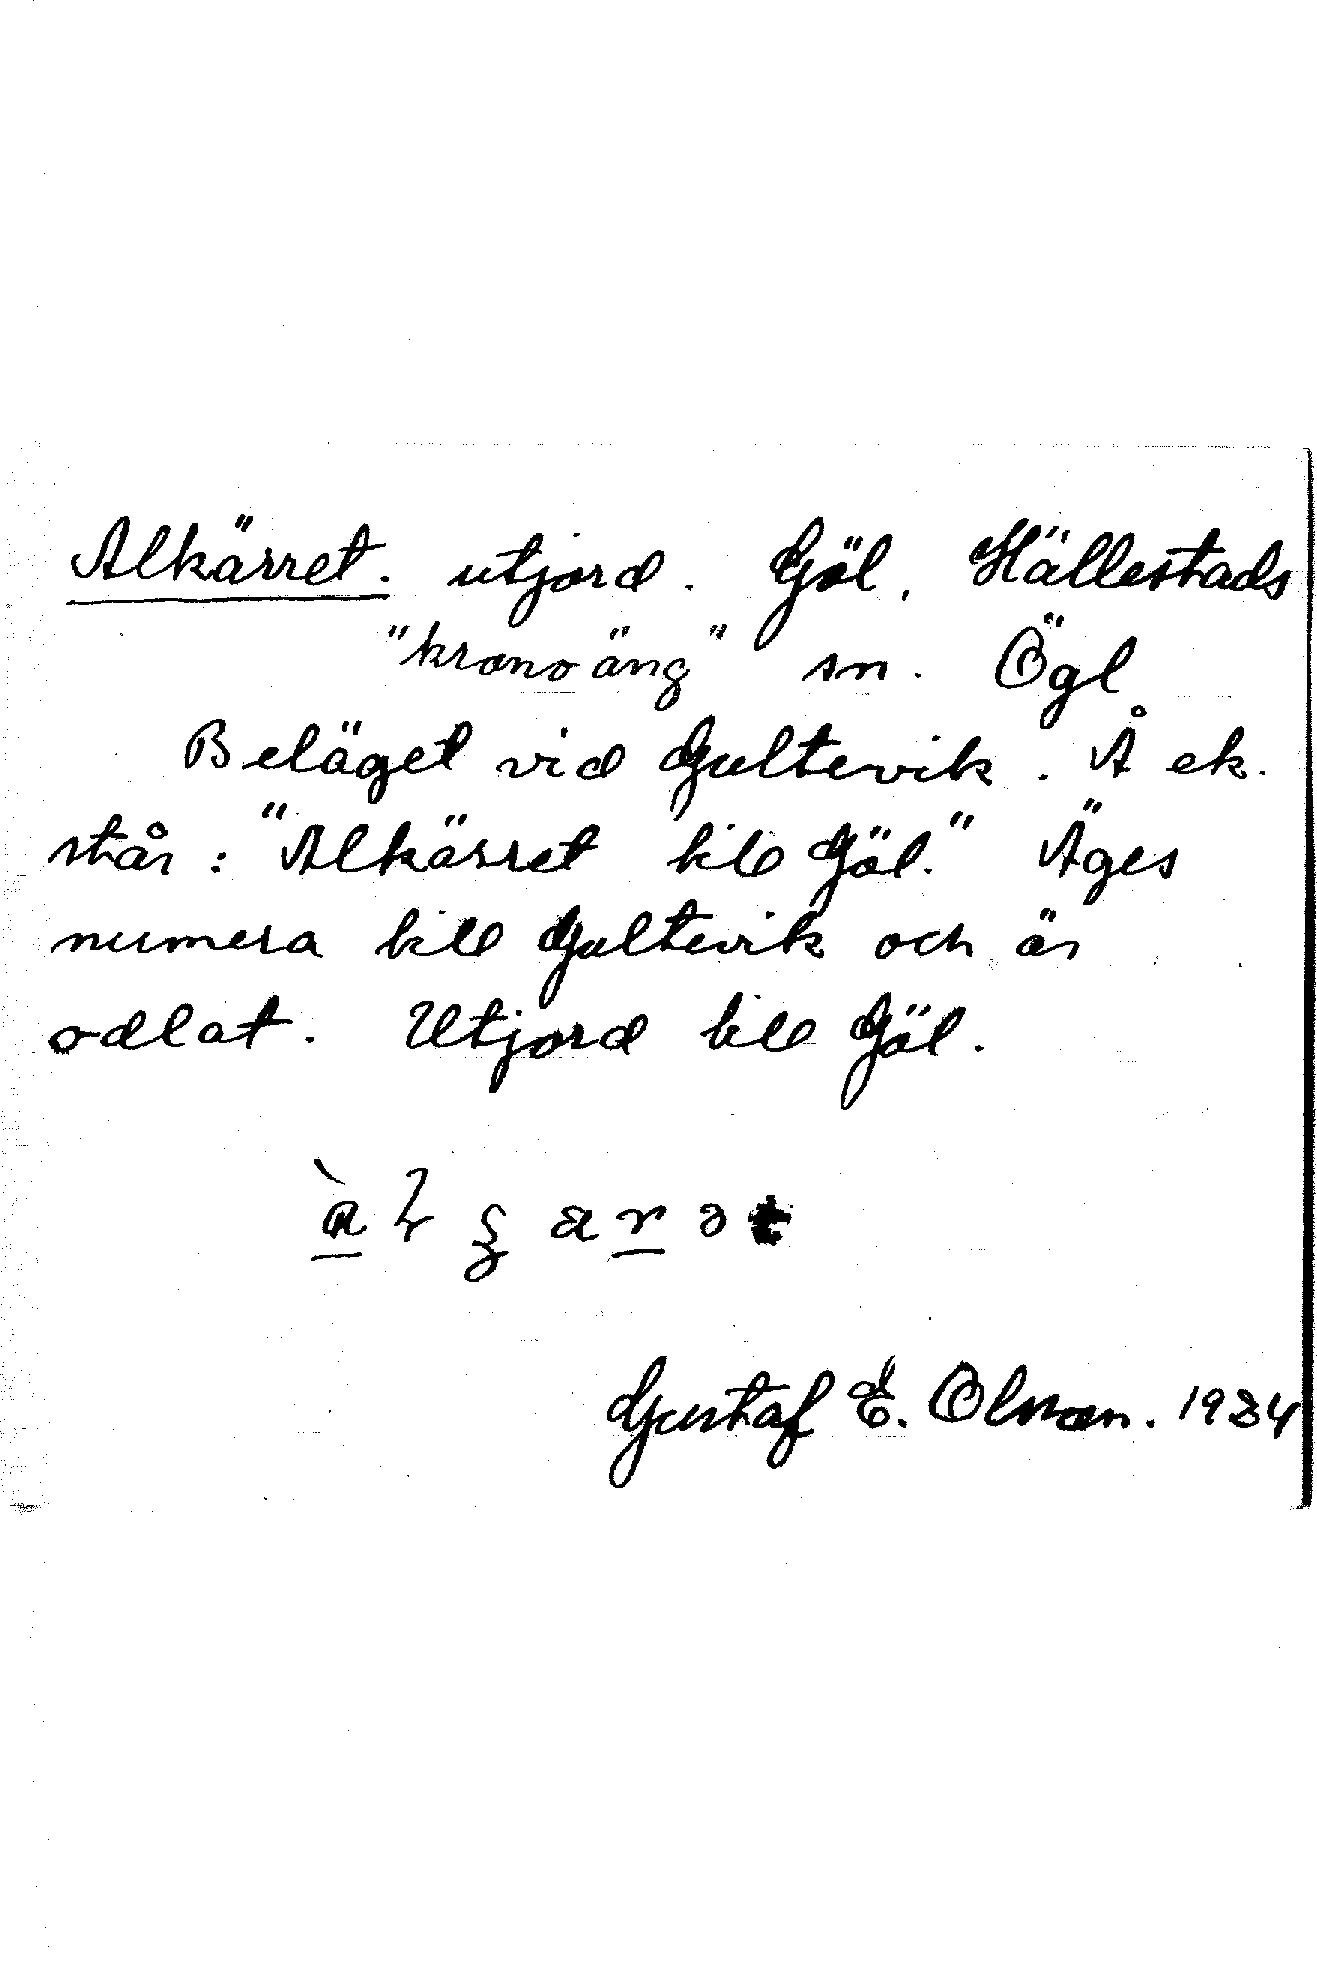 Alkärret. utjord. Göl, Hällestads
"kronoäng" sn. Ögl
Beläget vid Gultevik. Å ek.
står: "Alkärret till Göl." Äges
numera till Gultevik och är
odlat. Utjord till Göl.
Gustaf E. Olman. 1934